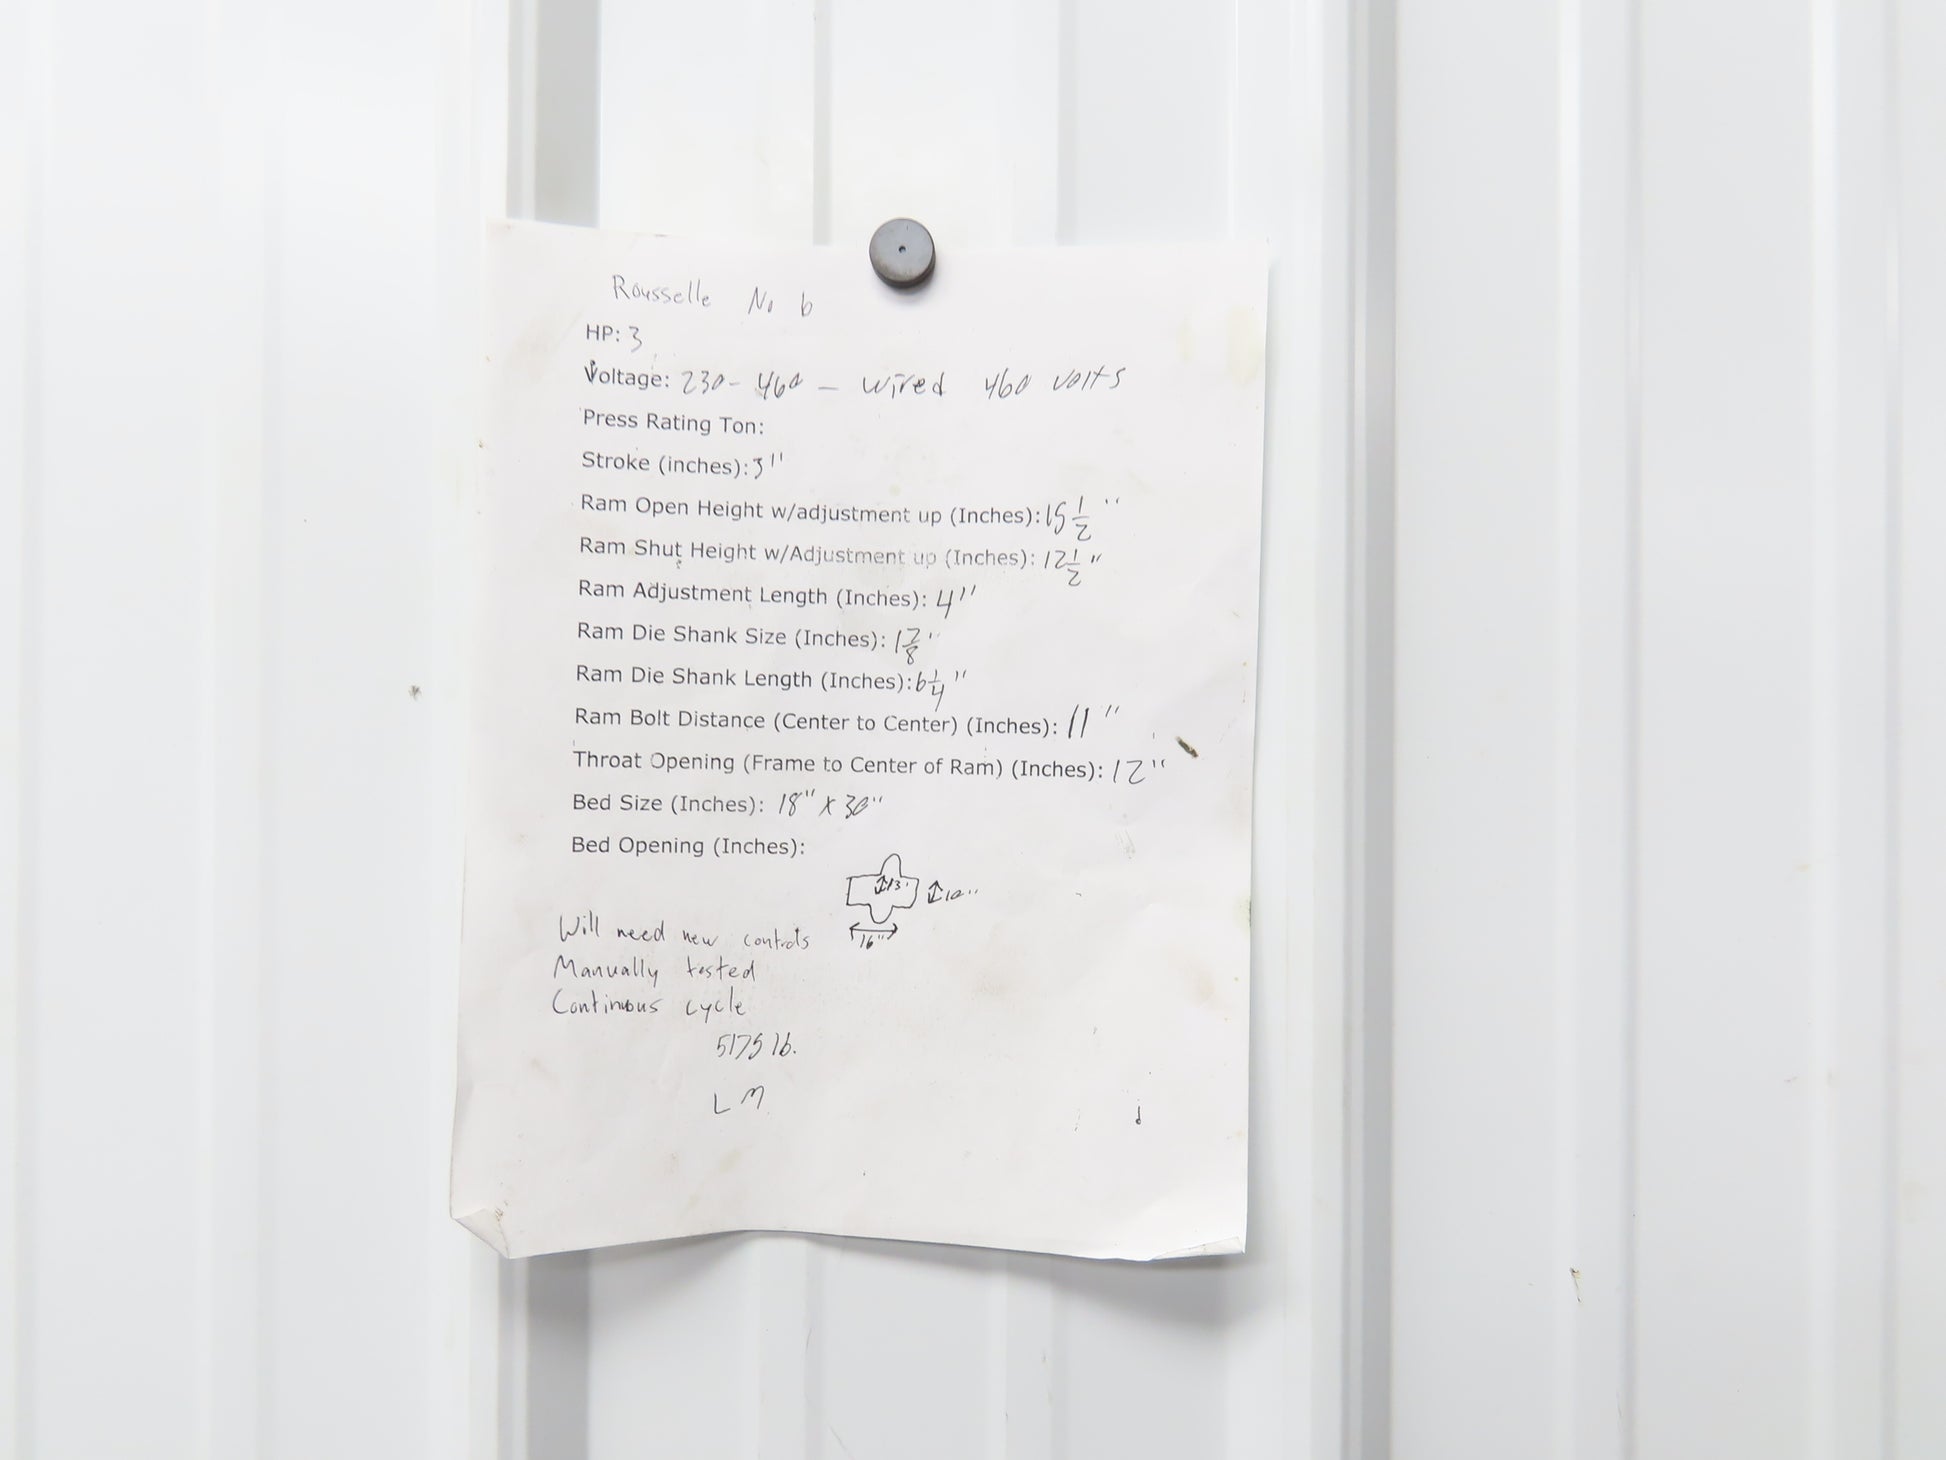 Rousselle No 6
HP: 3
Voltage: 230-460 - wired 460 volts
Press Rating Ton:
Stroke (inches): 3"
Ram Open Height w/adjustment up (Inches): 15 1/2 "
Ram Shut Height w/Adjustment up (Inches): 12 1/2 "
Ram Adjustment Length (Inches): 4"
Ram Die Shank Size (Inches): 1 7/8 "
Ram Die Shank Length (Inches): 6 1/4 "
Ram Bolt Distance (Center to Center) (Inches): 11 "
Throat Opening (Frame to Center of Ram) (Inches): 12"
Bed Size (Inches): 18" x 30"
Bed Opening (Inches):
13" 10"
16"
Will need new controls
Manually tested
Continuous cycle
5175 lb.
LM